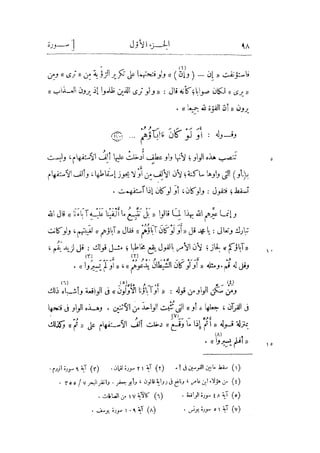 ٩٨ الجزء الأول [ سورة
فاستؤنفت « إن — (وإنّ)(١) » ولو فتحتهما على تكرير الرؤية من « ترى » ومن
« يرى » لكان صوابا؛ كأنه قال : « ولو ترى الذين ظلموا إذ يرون العذاب »
يرون « أن القوة لله جميعا » .
وقوله : أَوَ لَوْ كَانَ ءَابَآؤُهُمْ ...
تنصب هذه الواو؛ لأنها واو عطف أدخلت عليها ألف الاستفهام، وليست
بـ(أو) التى واوها ساكنة؛ لأن الألف من أو لا يجوز إسقاطها، وألف الاستفهام
تسقط؛ فتقول : ولو كان، أو لو كان إذا استفهمت .
وإنما عيّرهم الله بهذا لما قالوا « بَلْ نَتَّبِعُ مَا أَلْفَيْنَا عَلَيْهِ آبَاءَنَا » قال الله
تبارك وتعالى : يا محمد قل « أَوَ لَوْ كَانَ آبَاؤُهُمْ » فقال « آباؤهم » لغيبتهم، ولو كانت
« آباؤكم » لجاز؛ لأن الأمر بالقول يقع مخاطبا؛ مثل قولك : قل لزيد يقم ،
وقل له قم . ومثله « أَوَ لَوْ كَانَ الشَّيْطَانُ يَدْعُوهُمْ » ، « أَوَ لَمْ يَسِيرُوا » .
ومن سكّن الواو من قوله : « أَوْ آبَاؤُنَا الْأَوَّلُونَ » فى الواقعة وأشباه ذلك
فى القرآن، جعلها « أو » التى تثبت الواحد من الاثنين . وهذه الواو فى فتحها
بمنزلة قوله « أَثُمَّ إِذَا مَا وَقَعَ » دخلت ألف الاستفهام على « ثم » وكذلك
« أفلم يسيروا » .
(١) سقط ما بين القوسين فى أ . (٢) آية ٢١ سورة لقمان . (٣) آية ٩ سورة الروم .
(٥) آية ٤٨ سورة الواقعة . (٦) كالآية ١٧ من الصافات .
(٧) آية ٥١ سورة يونس . (٨) آية ١٠٩ سورة يوسف .